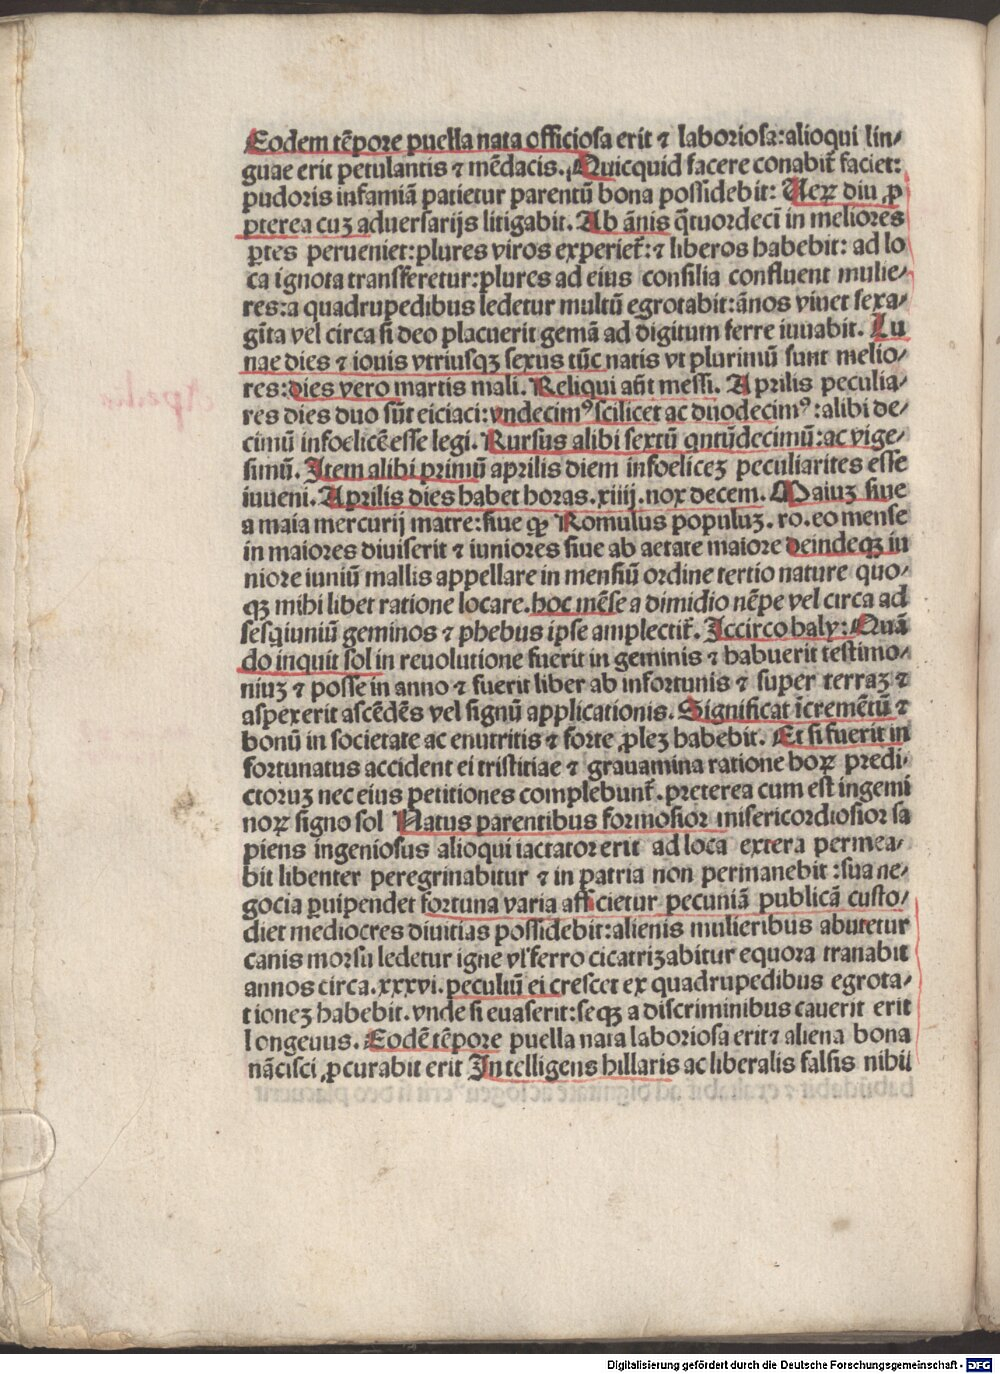 Eodem tēpore puella nata officiosa erit ⁊ laboriosa:alioqui lin⸗
guae erit petulantis ⁊ mēdacis. Quicquid facere conabit̃ faciet:
pudoris infamiā patietur parentū bona possidebit: Ueꝝ diu ꝓ
pterea cuꝫ aduersarijs litigabit. Ab ānis q̄tuordecī in meliores
ꝑtes perueniet:plures viros experiet̃:⁊ liberos habebit: ad lo
ca ignota transferetur:plures ad eius consilia confluent mulie⸗
res:a quadrupedibus ledetur multū egrotabit:ānos viuet sexa⸗
gīta vel circa si deo placuerit gemā ad digitum ferre iuuabit. Lu
nae dies ⁊ iouis vtriusqꝫ sexus tūc natis vt plurimū sunt melio⸗
res:dies vero martis mali. Reliqui añt messi. Aprilis peculia⸗
res dies duo sūt eiciaci:vndecimꝰ scilicet ac duodecimꝰ:alibi de⸗
cimū infoelicē esse legi. Rursus alibi sextū qntūdecimū:ac vige⸗
simū. Item alibi primū aprilis diem infoeliceꝫ peculiarites esse
iuueni. Aprilis dies habet horas.xiiij.nox decem. Maiuꝫ siue
a maia mercurij matre:siue ꝙ Romulus populuꝫ.ro.eo mense
in maiores diuiserit ⁊ iuniores siue ab aetate maiore deindeqꝫ iu
niore iuniū mallis appellare in mensiū ordine tertio nature quo⸗
qꝫ mihi libet ratione locare.hoc mēse a dimidio nēpe vel circa ad
sesq̇iuniū geminos ⁊ phebus ipse amplectit̃. Iccirco haly: Quā
do inquit sol in reuolutione fuerit in geminis ⁊ habuerit testimo⸗
niuꝫ ⁊ posse in anno ⁊ fuerit liber ab infortunis ⁊ super terraꝫ ⁊
aspexerit ascēdēs vel signū applicationis. Significat īcremētū ⁊
bonū in societate ac enutritis ⁊ forte ꝓleꝫ habebit. Et si fuerit in
fortunatus accident ei tristitiae ⁊ grauamina ratione hoꝝ predi⸗
ctoruꝫ nec eius petitiones complebunt̃.preterea cum est in gemi
noꝝ signo sol Natus parentibus formosior misericordiosior sa
piens ingeniosus alioqui iactator erit ad loca extera permea⸗
bit libenter peregrinabitur ⁊ in patria non permanebit:sua ne⸗
gocia ꝑuipendet fortuna varia afficietur pecuniā publicā custo⸗
diet mediocres diuitias possidebit:alienis mulieribus abutetur
canis morsu ledetur igne vl' ferro cicatrizabitur equora tranabit
annos circa.xxxvi.peculiū ei crescet ex quadrupedibus egrota⸗
tioneꝫ habebit.vnde si euaserit:seqꝫ a discriminibus cauerit erit
longeuus. Eodē tēpore puella nata laboriosa erit ⁊ aliena bona
nācisci ꝓcurabit erit Intelligens hillaris ac liberalis falsis nihil
Aprilis
Digitalisierung gefördert durch die Deutsche Forschungsgemeinschaft - DFG